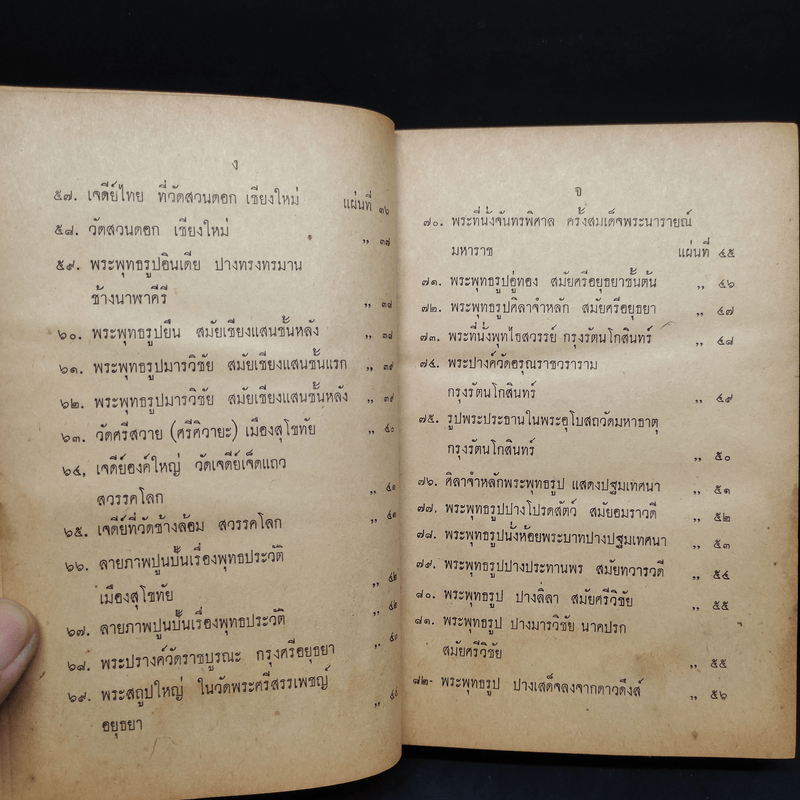 ง
๕๗. เจดีย์ไทย ที่วัดสวนดอก เชียงใหม่ แผ่นที่ ๓๖
๕๘. วัดสวนดอก เชียงใหม่ ,, ๓๗
๕๙. พระพุทธรูปอินเดีย ปางทรงทรมาน
ช้างนาฬาคีรี ,, ๓๘
๖๐. พระพุทธรูปยืน สมัยเชียงแสนชั้นหลัง ,, ๓๘
๖๑. พระพุทธรูปมารวิชัย สมัยเชียงแสนชั้นแรก ,, ๓๙
๖๒. พระพุทธรูปมารวิชัย สมัยเชียงแสนชั้นหลัง ,, ๓๙
๖๓. วัดศรีสวาย (ศรีศิวายะ) เมืองสุโขทัย ,, ๔๐
๖๔, เจดีย์องค์ใหญ่ วัดเจดีย์เจ็ดแถว
สวรรคโลก ,, ๔๑
๖๕. เจดีย์ที่วัดช้างล้อม สวรรคโลก ,, ๔๑
๖๖. ลายภาพปูนปั้นเรื่องพุทธประวัติ
เมืองสุโขทัย ,, ๔๒
๖๗. ลายภาพปูนปั้นเรื่องพุทธประวัติ ,, ๔๒
๖๘. พระปรางค์วัดราชบูรณะ กรุงศรีอยุธยา ,,
๖๙. พระสถูปใหญ่ ในวัดพระศรีสรรเพชญ์
อยุธยา ,,
จ
๗๐. พระที่นั่งจันทรพิศาล ครั้งสมเด็จพระนารายณ์
มหาราช แผ่นที่ ๔๕
๗๑. พระพุทธรูปอู่ทอง สมัยศรีอยุธยาชั้นต้น ,, ๔๖
๗๒. พระพุทธรูปศิลาจำหลัก สมัยศรีอยุธยา ,, ๔๗
๗๓. พระที่นั่งพุทไธสวรรย์ กรุงรัตนโกสินทร์ ,, ๔๘
๗๔. พระปางค์วัดอรุณราชวราราม
กรุงรัตนโกสินทร์ ,, ๔๙
๗๕. รูปพระประธานในพระอุโบสถวัดมหาธาตุ
กรุงรัตนโกสินทร์ ,, ๕๐
๗๖. ศิลาจำหลักพระพุทธรูป แสดงปฐมเทศนา ,, ๕๑
๗๗. พระพุทธรูปปางโปรดสัตว์ สมัยอมราวดี ,, ๕๒
๗๘. พระพุทธรูปนั่งห้อยพระบาทปางปฐมเทศนา ,, ๕๓
๗๙. พระพุทธรูปปางประทานพร สมัยทวารวดี ,, ๕๔
๘๐. พระพุทธรูป ปางลีลา สมัยศรีวิชัย ,, ๕๕
๘๑. พระพุทธรูป ปางมารวิชัย นาคปรก
สมัยศรีวิชัย ,, ๕๕
๘๒- พระพุทธรูป ปางเสด็จลงจากดาวดึงส์ ,, ๕๖